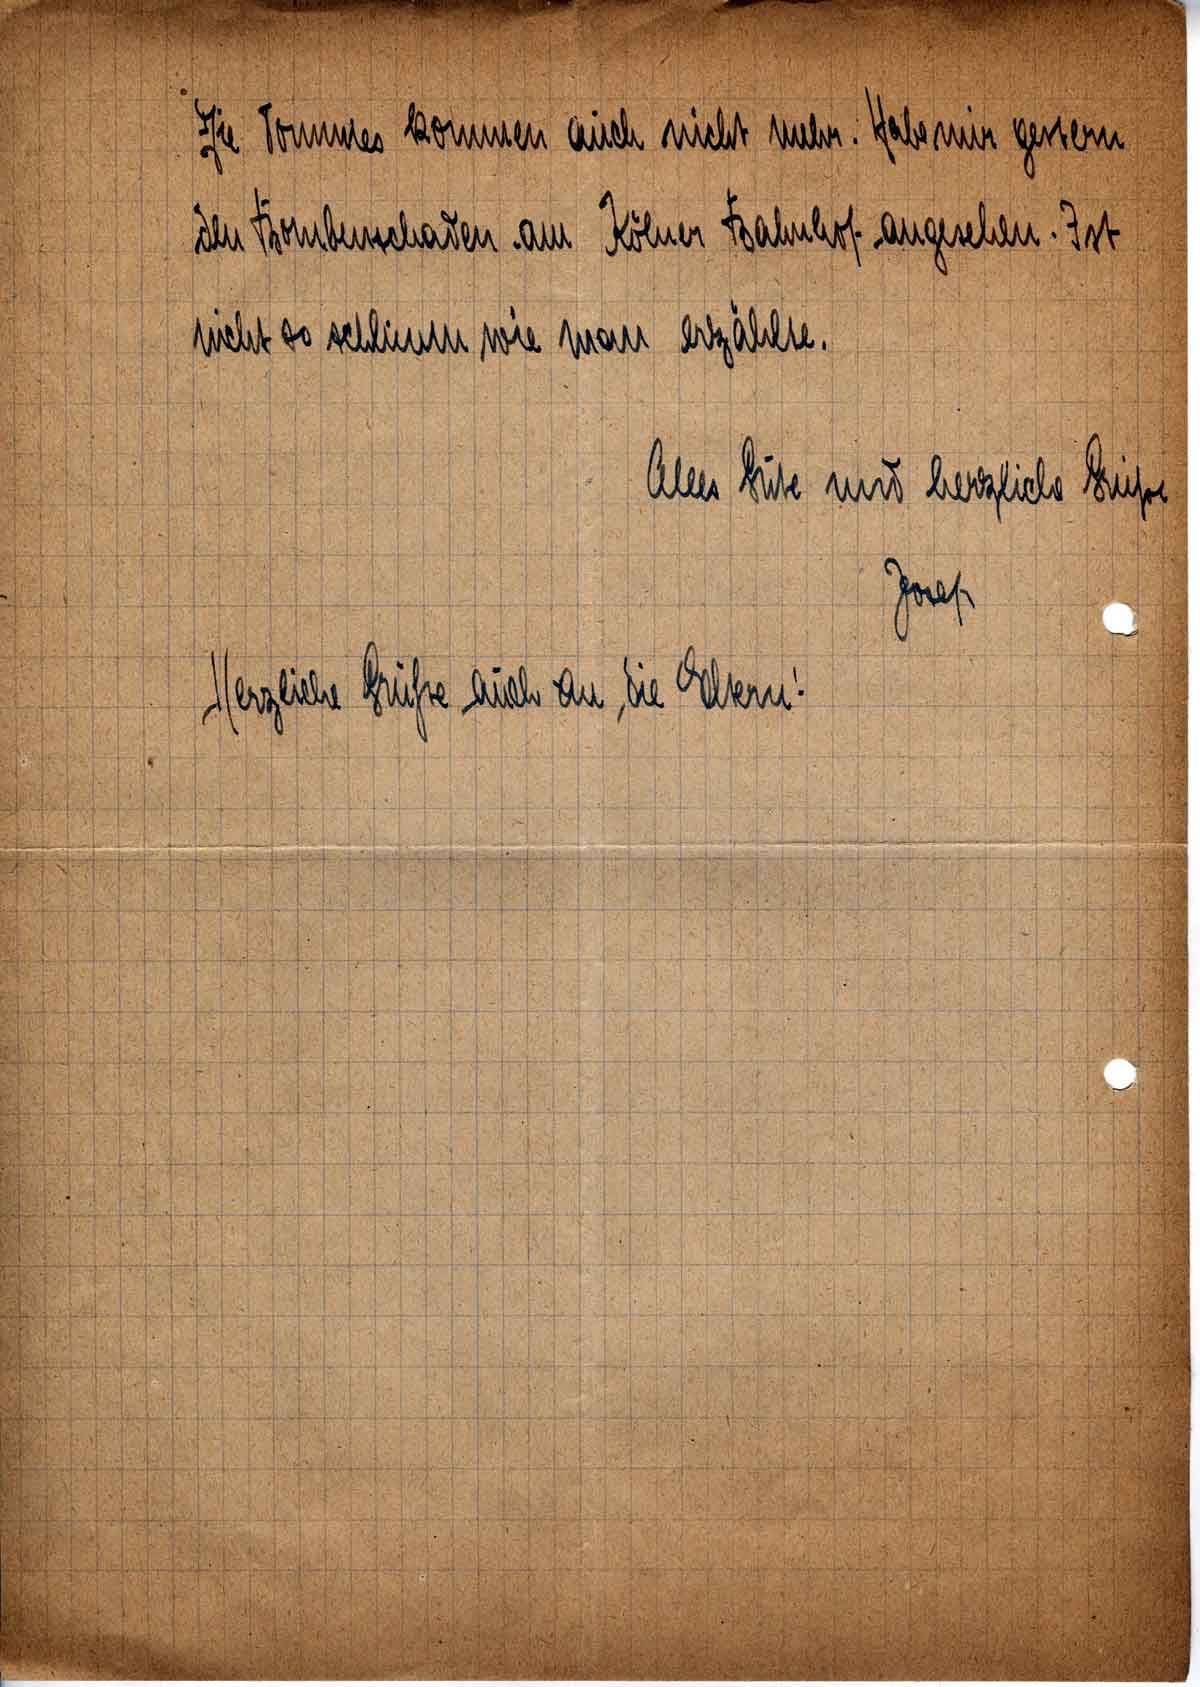 Die Tommies kommen auch nicht mehr. Habe mir gestern
den Bombenschaden am Kölner Bahnhof angesehen. Ist
nicht so schlimm wie man erzählte.
Alles Gute und herzliche Grüße
Josef
Herzliche Grüße auch an die Eltern!